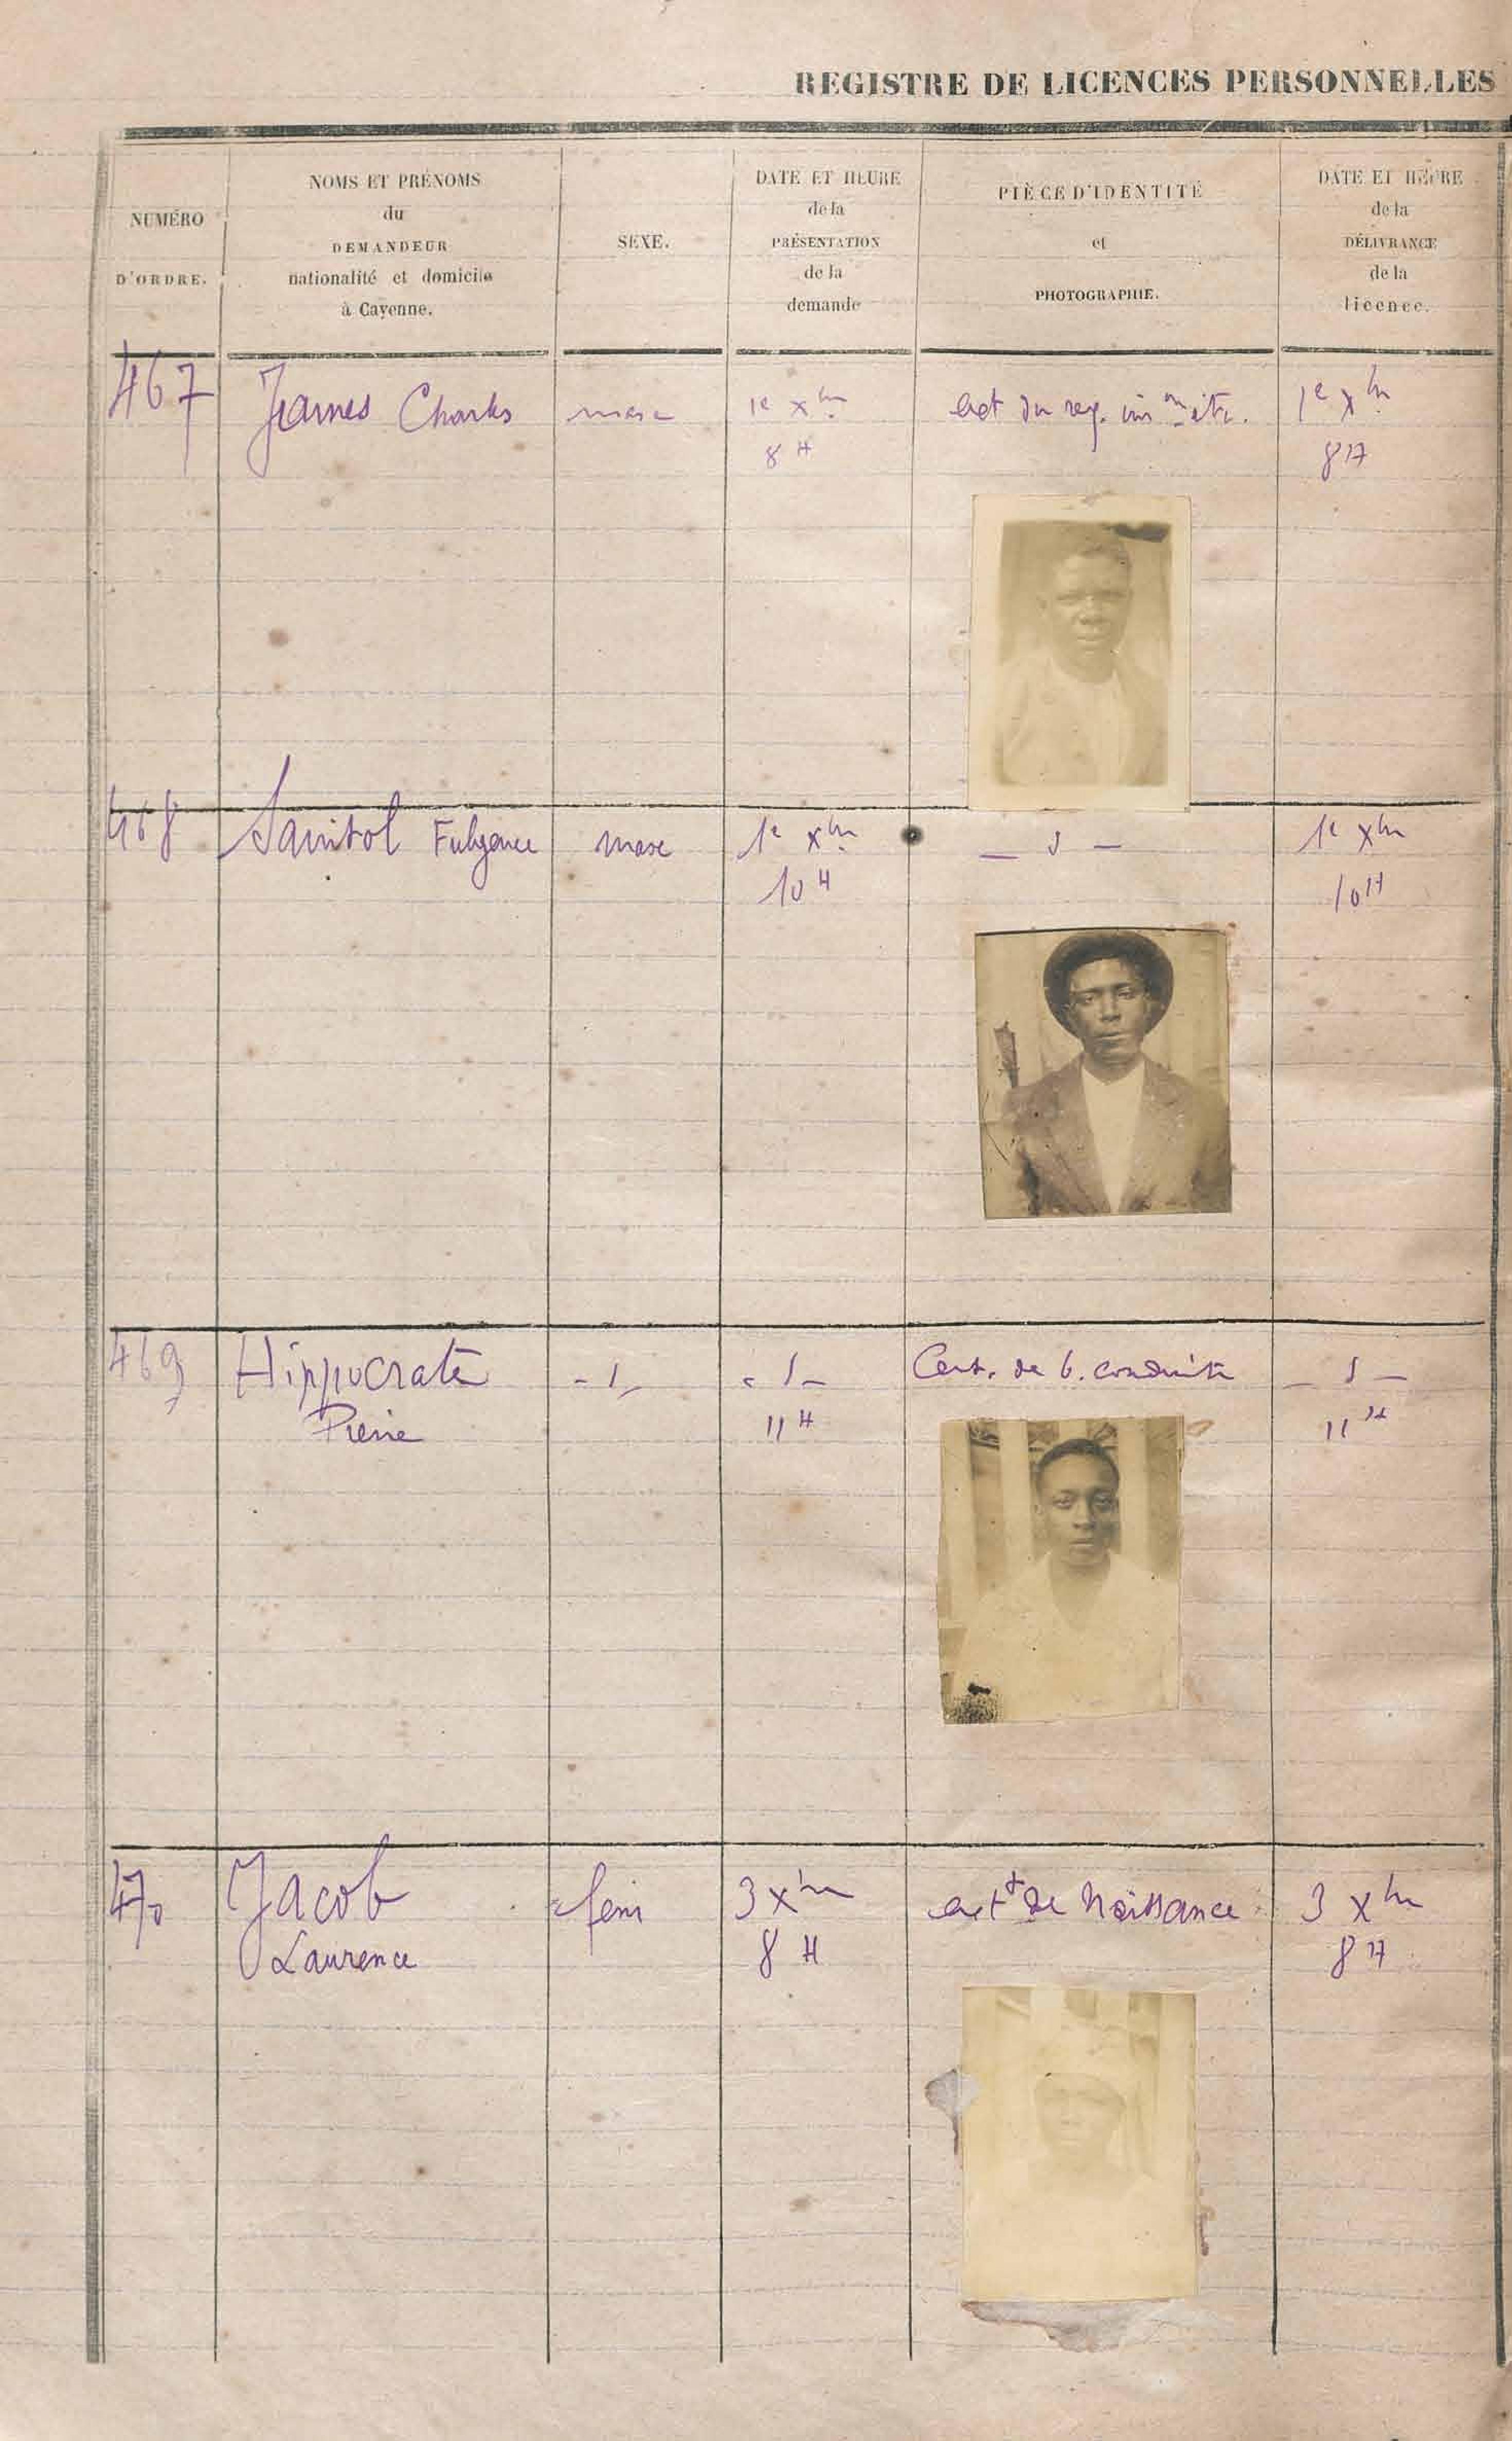 REGISTRE DE LICENCES PERSONNELLES
NUMÉRO
D'ORDRE.
NOMS ET PRÉNOMS
du
DEMANDEUR
nationalité et domicile
à Cayenne.
SEXE.
DATE ET HEURE
de la
PRÉSENTATION
de la
demande
PIÈCE D'IDENTITÉ
et
PHOTOGRAPHIE.
DATE ET HEURE
de la
DÉLIVRANCE
de la
licence.
467 James Charles masc 1e xbre du reg. 1e xbre
8 H 8 H
468 Sainitol Fulgence masc 1e xbre 1e xbre
10 H 10 H
469 Hippocrate Cert. de b. conduite
Pierre 11 H 11 H
470 Jacob fém 3 xbre de Naissance 3 xbre
Laurence 8 H 8 H